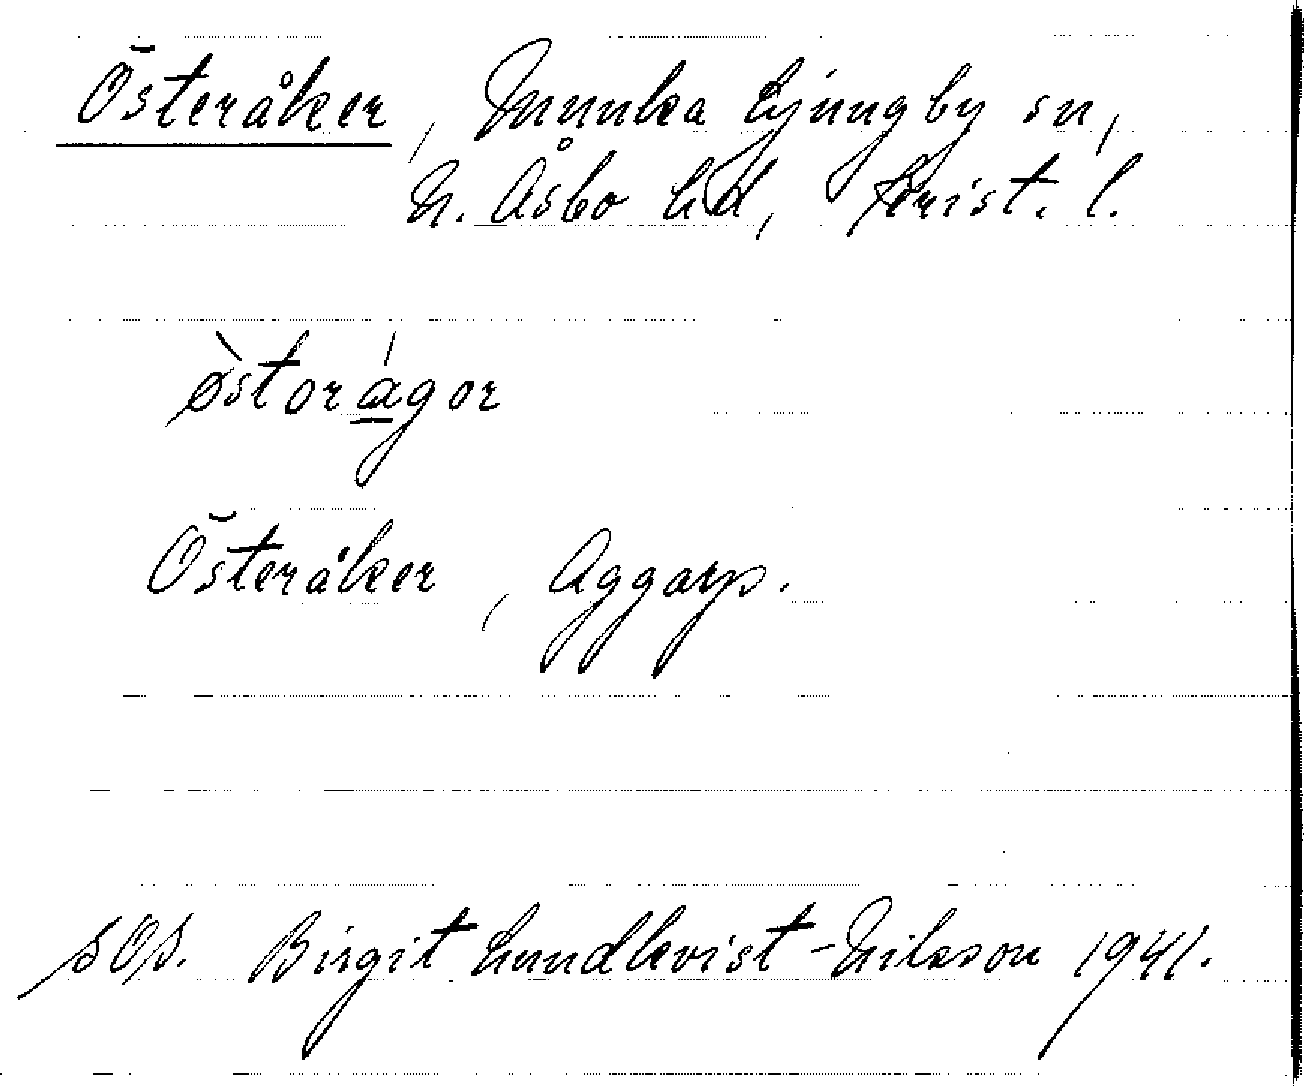 Österåker, Munka Ljungby sn,
N. Åsbo hd, Krist. l.
østorágor
Österåker, Aggarp.
sOs. Birgit Lundkvist-Nilsson 1941.